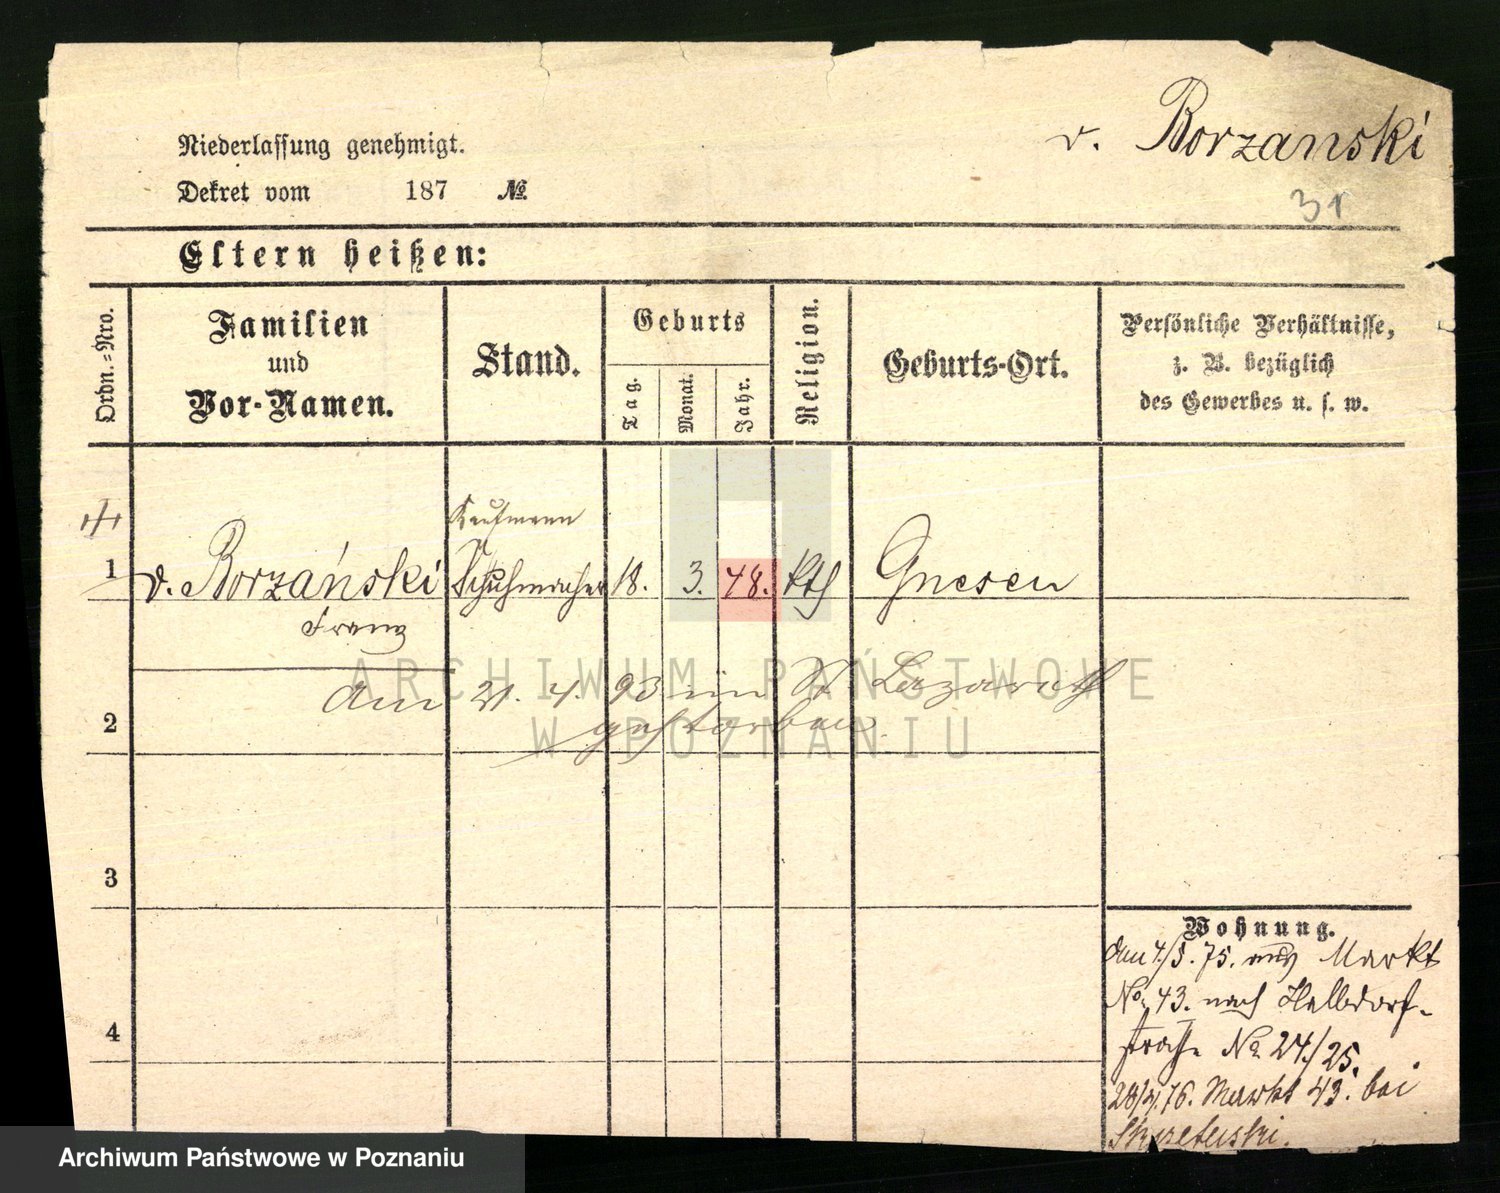 v. Borzanski
31
Niederlassung genehmigt.
Dekret vom 187 №
Eltern heißen:
Ordn.=Nro.
Familien
und
Vor-Namen.
Stand.
Geburts
Tag.
Monat.
Jahr.
Religion.
Geburts-Ort.
Persönliche Verhältnisse,
z. B. bezüglich
des Gewerbes u. s. w.
Kaufmann
1 v. Borzański Schuhmacher 18. 3. 48. kth Gnesen
Franz
Am 21. 4. 93 im St Lazareth
2 gestorben.
3
4
Wohnung.
Am 4/5. 75. aus Markt
No. 43. nach Halbdorf-
straße No 24/25.
28/4. 76. Markt 43. bei
ARCHIWUM PAŃSTWOWE
W POZNANIU
Archiwum Państwowe w Poznaniu